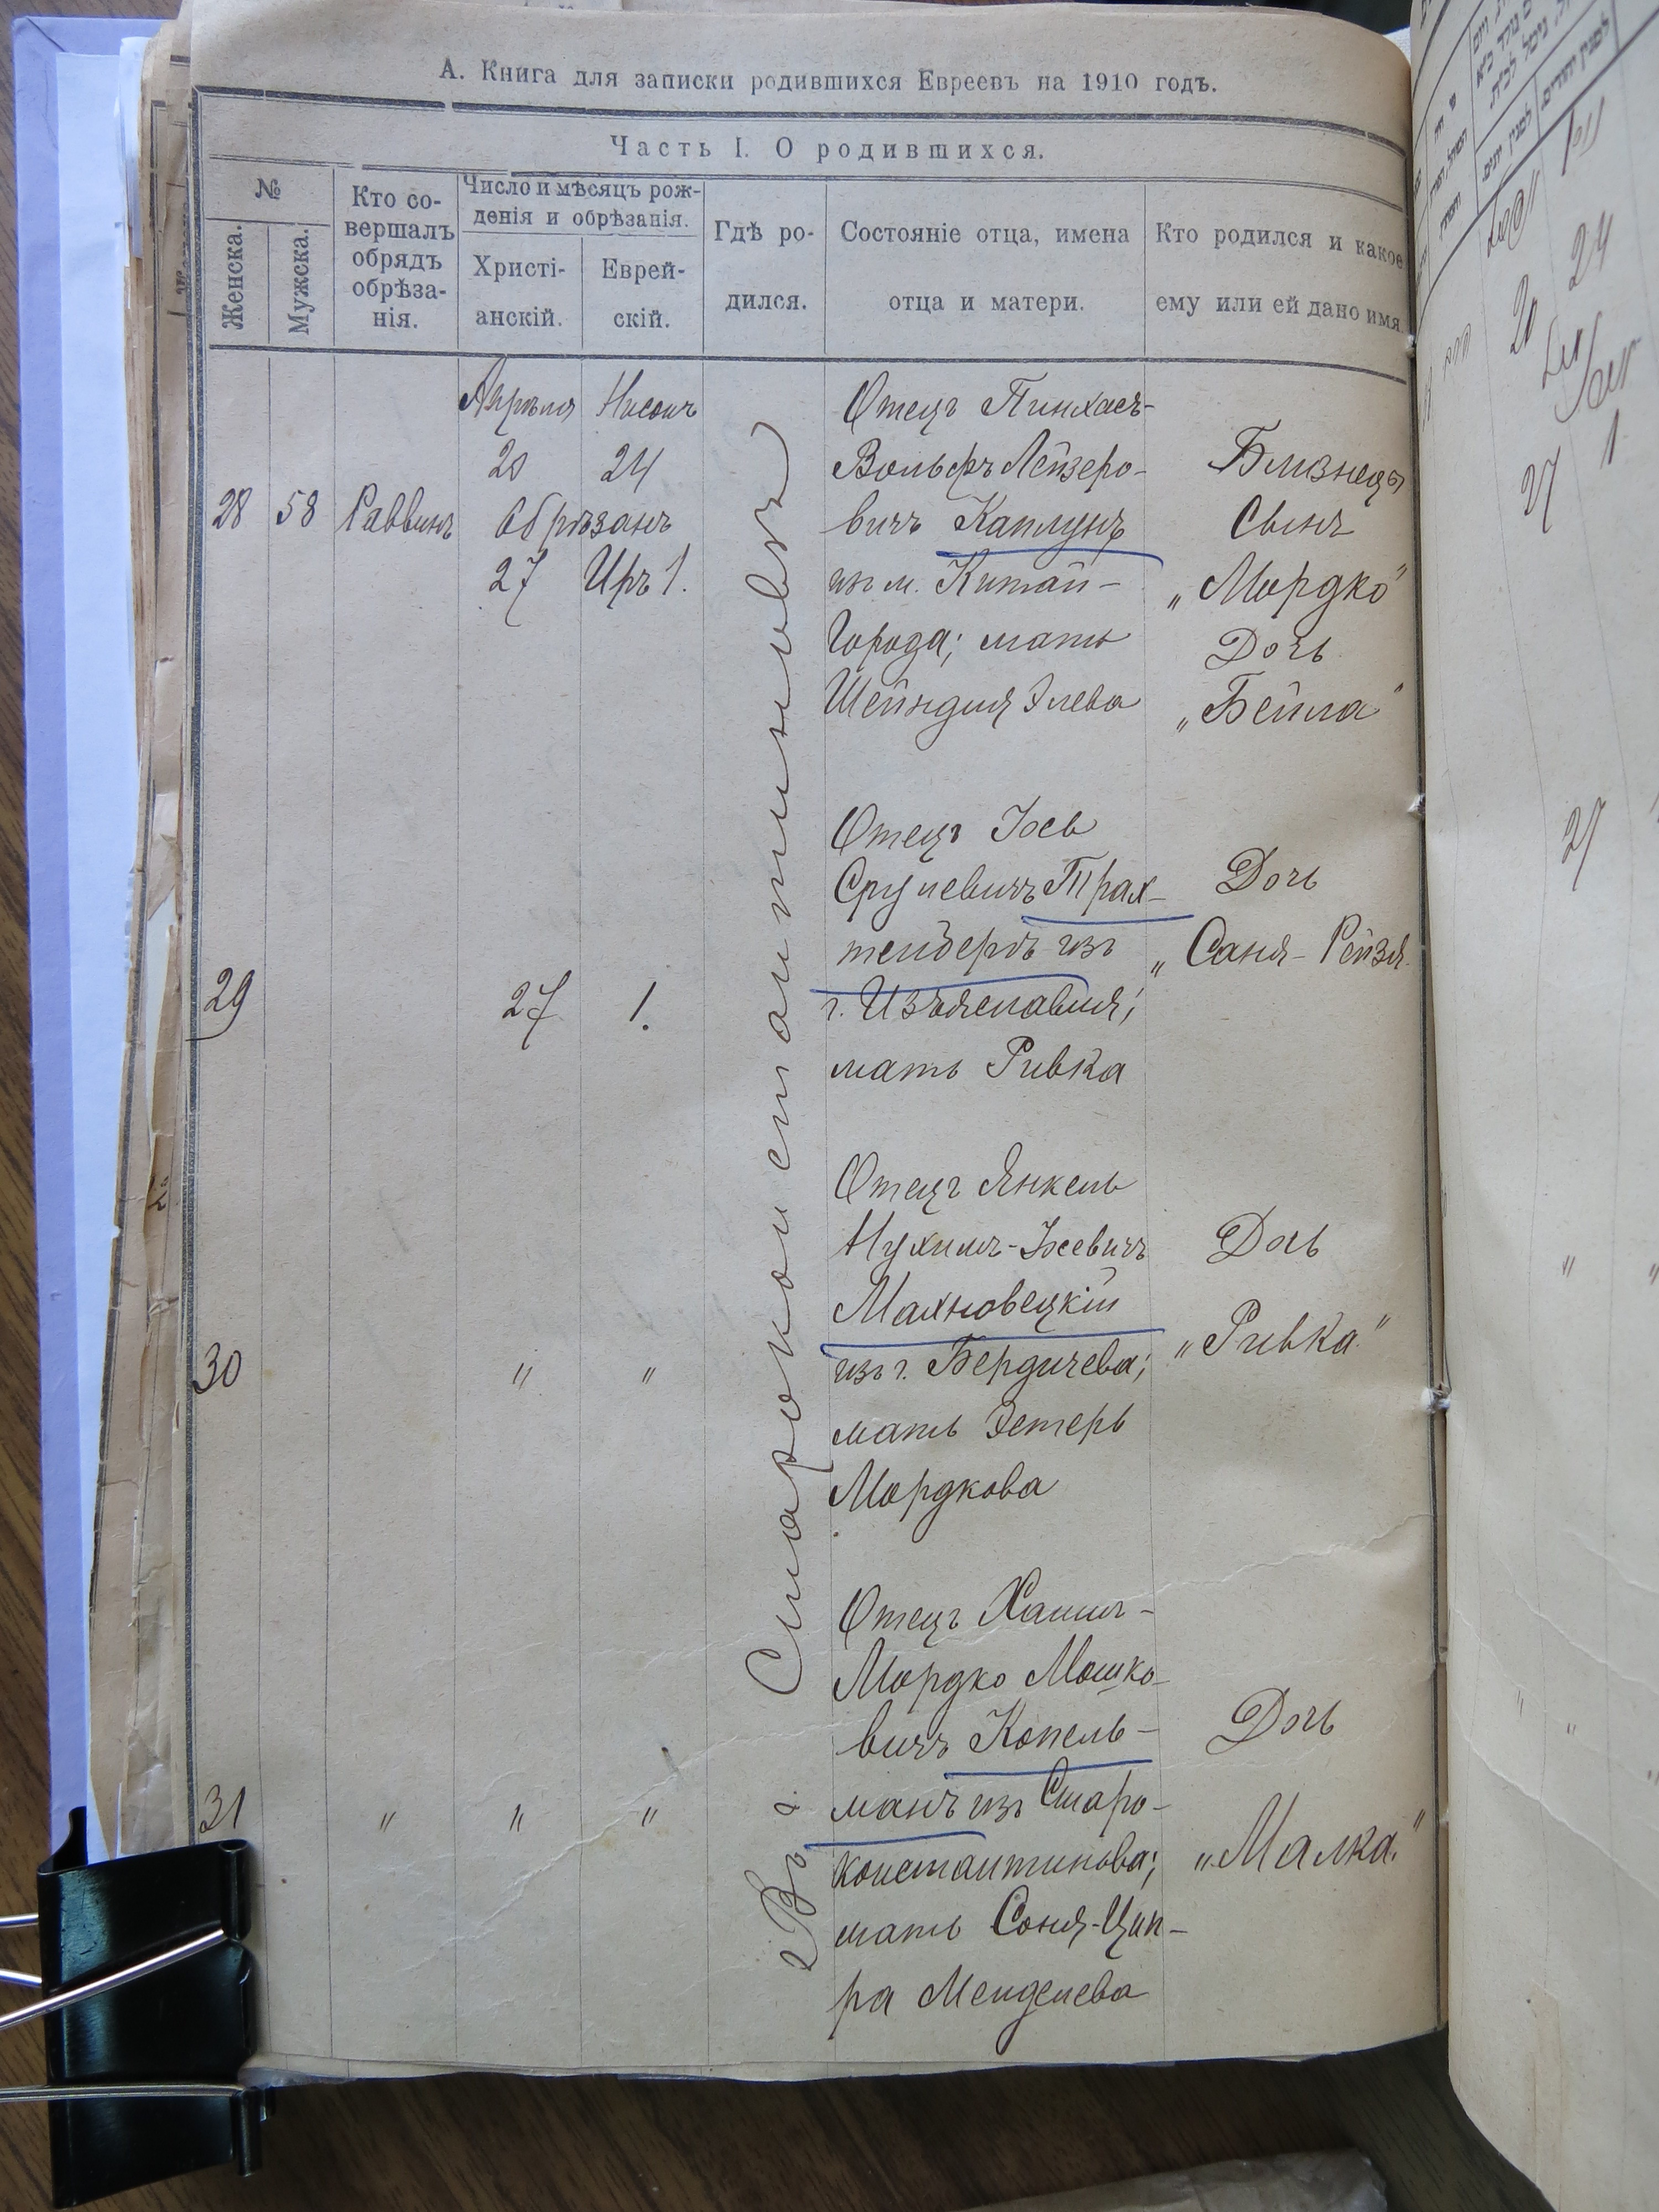 А. Книга для записки родившихся Евреевъ на 1910 годъ.
Часть I. О родившихся.
№
Женска.
Мужска.
Кто со-
вершалъ
обрядъ
обрѣза-
нія.
Число и мѣсяцъ рож-
денія и обрѣзанія.
Христі-
анскій.
Еврей-
скій.
Гдѣ ро-
дился.
Состояніе отца, имена
отца и матери.
Кто родился и какое
ему или ей дано имя
Въ г. Староконстантиновѣ
28 58 Раввинъ
Апрѣля Нисонъ
20 24
Обрѣзанъ
27 Иръ 1.
Отецъ Пинхасъ-
Вольфъ Лейзеро-
вичъ Каплунъ
изъ м. Китай-
Города; мать
Шейндля Элева
Близнецы
Сынъ
„Мордко"
Дочь
„Бейла"
29
27 1.
Отецъ Іось
Срулевичъ Трах-
тенберъ изъ
г. Изъяславля;
мать Ривка
Дочь
„Саня-Рейзя
30
" "
Отецъ Янкель
Нухимъ-Іосевичъ
Махновецкій
изъ г. Бердичева;
мать Эстеръ
Мордкова
Дочь
„Ривка"
31
" " "
Отецъ Хаимъ-
Мордко Мошко-
вичъ Копель-
манъ изъ Старо-
константинова;
мать Соня-Цип-
ра Менделева
Дочь
„Малка"
20 24
27 1
27